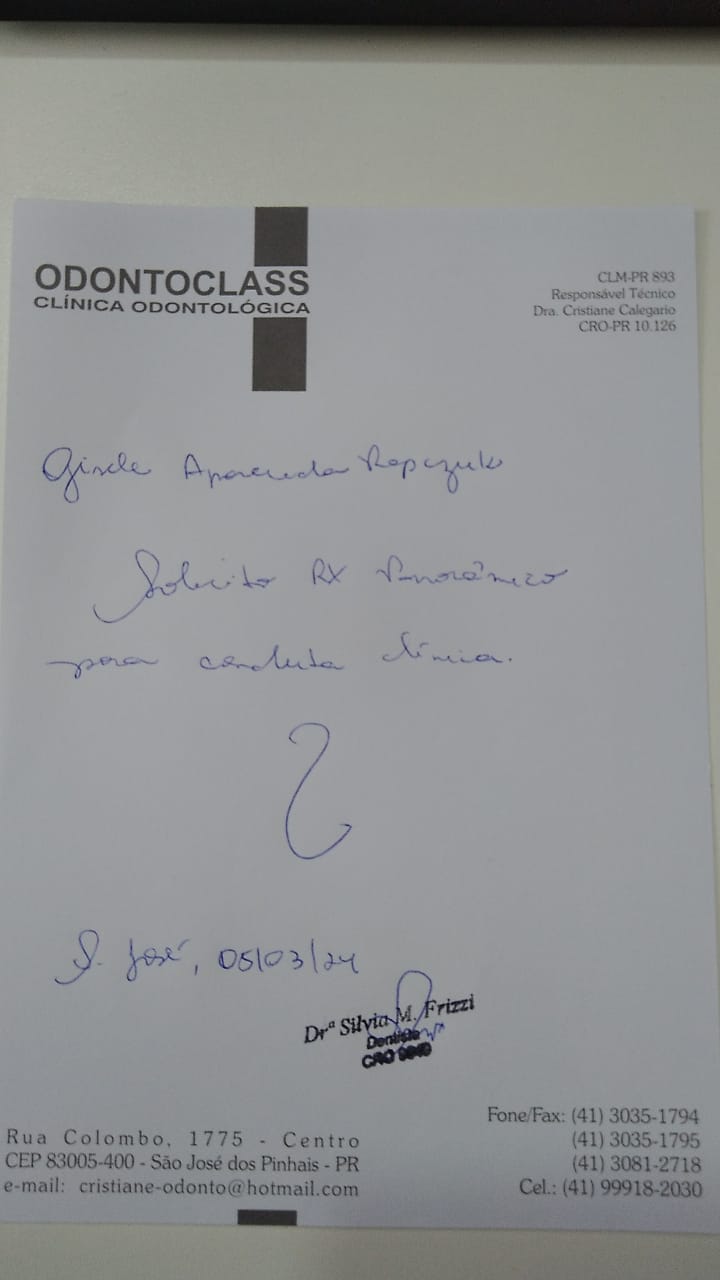 ODONTOCLASS
CLÍNICA ODONTOLÓGICA
CLM-PR 893
Responsável Técnico
Dra. Cristiane Calegario
CRO-PR 10.126
Gisele Aparecida
Solicito RX Panorâmico
para conduta clínica.
S. José, 05/03/24
Drª Silvia M. Frizzi
Dentista
CRO
Rua Colombo, 1775 - Centro
CEP 83005-400 - São José dos Pinhais - PR
e-mail: cristiane-odonto@hotmail.com
Fone/Fax: (41) 3035-1794
(41) 3035-1795
(41) 3081-2718
Cel.: (41) 99918-2030